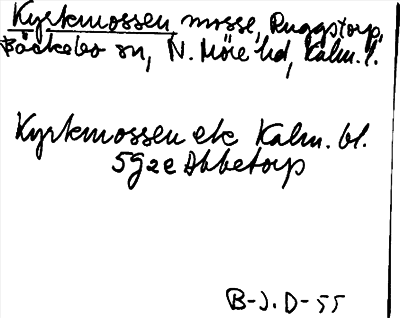 Kyrkmossen mosse, Ruggstorp,
Bäckebo sn, N. Möre hd, Kalm. l.
Kyrkmossen ek Kalm. bl.
5g2e Abbetorp
B-J. D-55